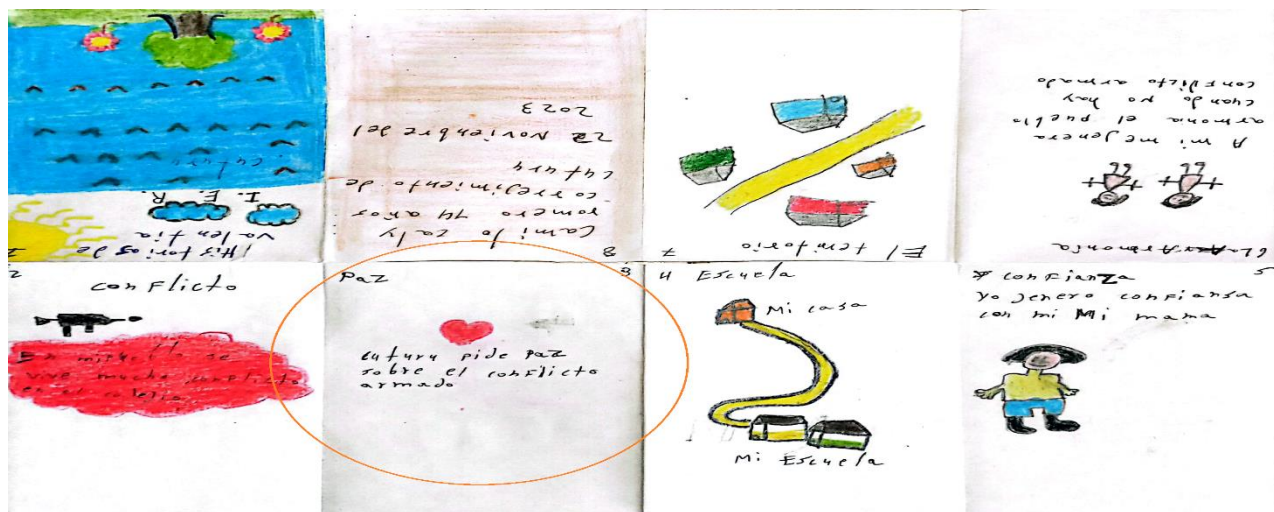 1
Historias de
Valentia
I. E. R.
cutury
8
Camilo zaly
romero 14 años
corredimiento de
cutury
22 Noviembre del
2023
El territorio 7
6 Armonía
A mi me jenera
armonia el pueblo
cuando no hay
conflicto armado
2
conflicto
En mi se
vive mucho conflicto
en el colegio
Paz 3
cutury pide paz
sobre el conflicto
armado
4 Escuela
Mi casa
Mi Escuela
confianza 5
yo jenero confiansa
con mi Mi mama